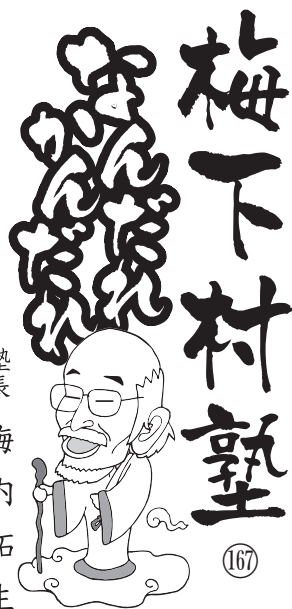 梅下村塾
167
なんだれ
かんだれ
塾長 梅内拓生